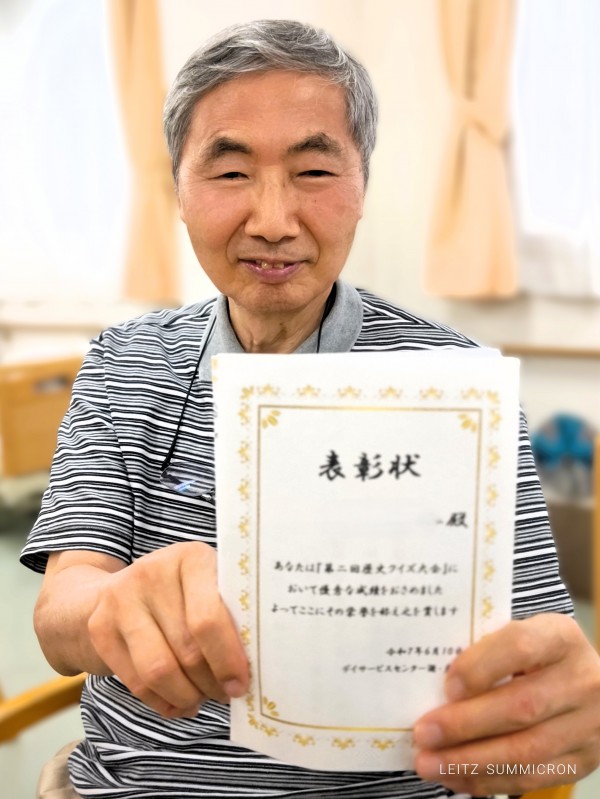 表彰状
殿
あなたは『第二回歴史クイズ大会』に
おいて優秀な成績をおさめました
よってここにその栄誉を称え之を賞します
令和7年6月10日
デイサービスセンター
LEITZ SUMMICRON